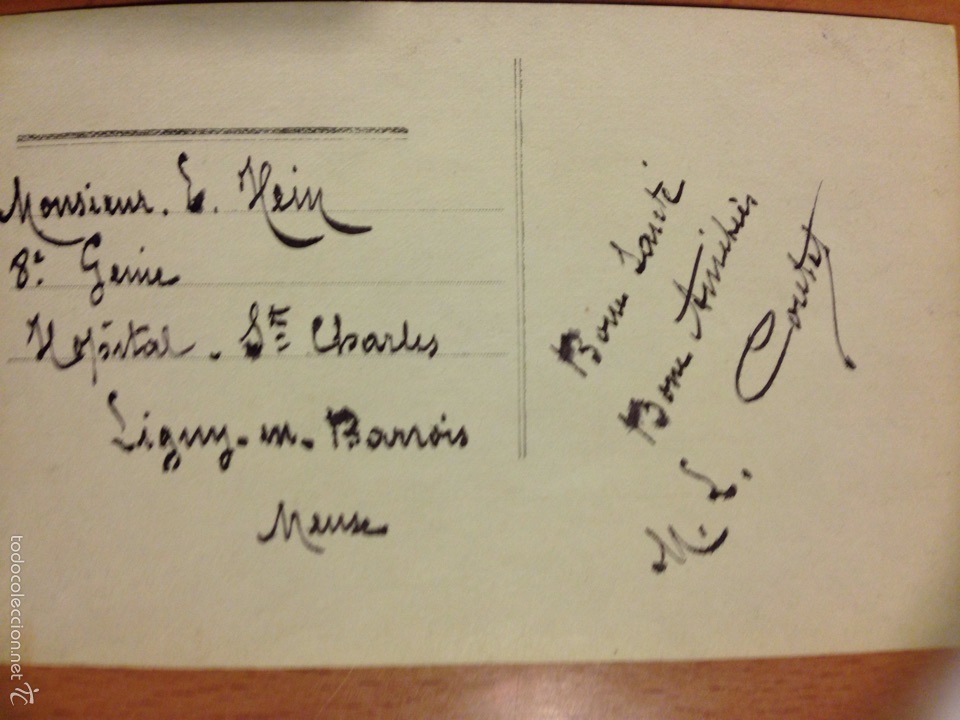 Monsieur. L. Hein
8e Genie
Hopital. Ste Charles
Ligny-en-Barrois
Meuse
Bonne Santé
Bonne Amitiés
M. L. Coutet
todocoleccion.net